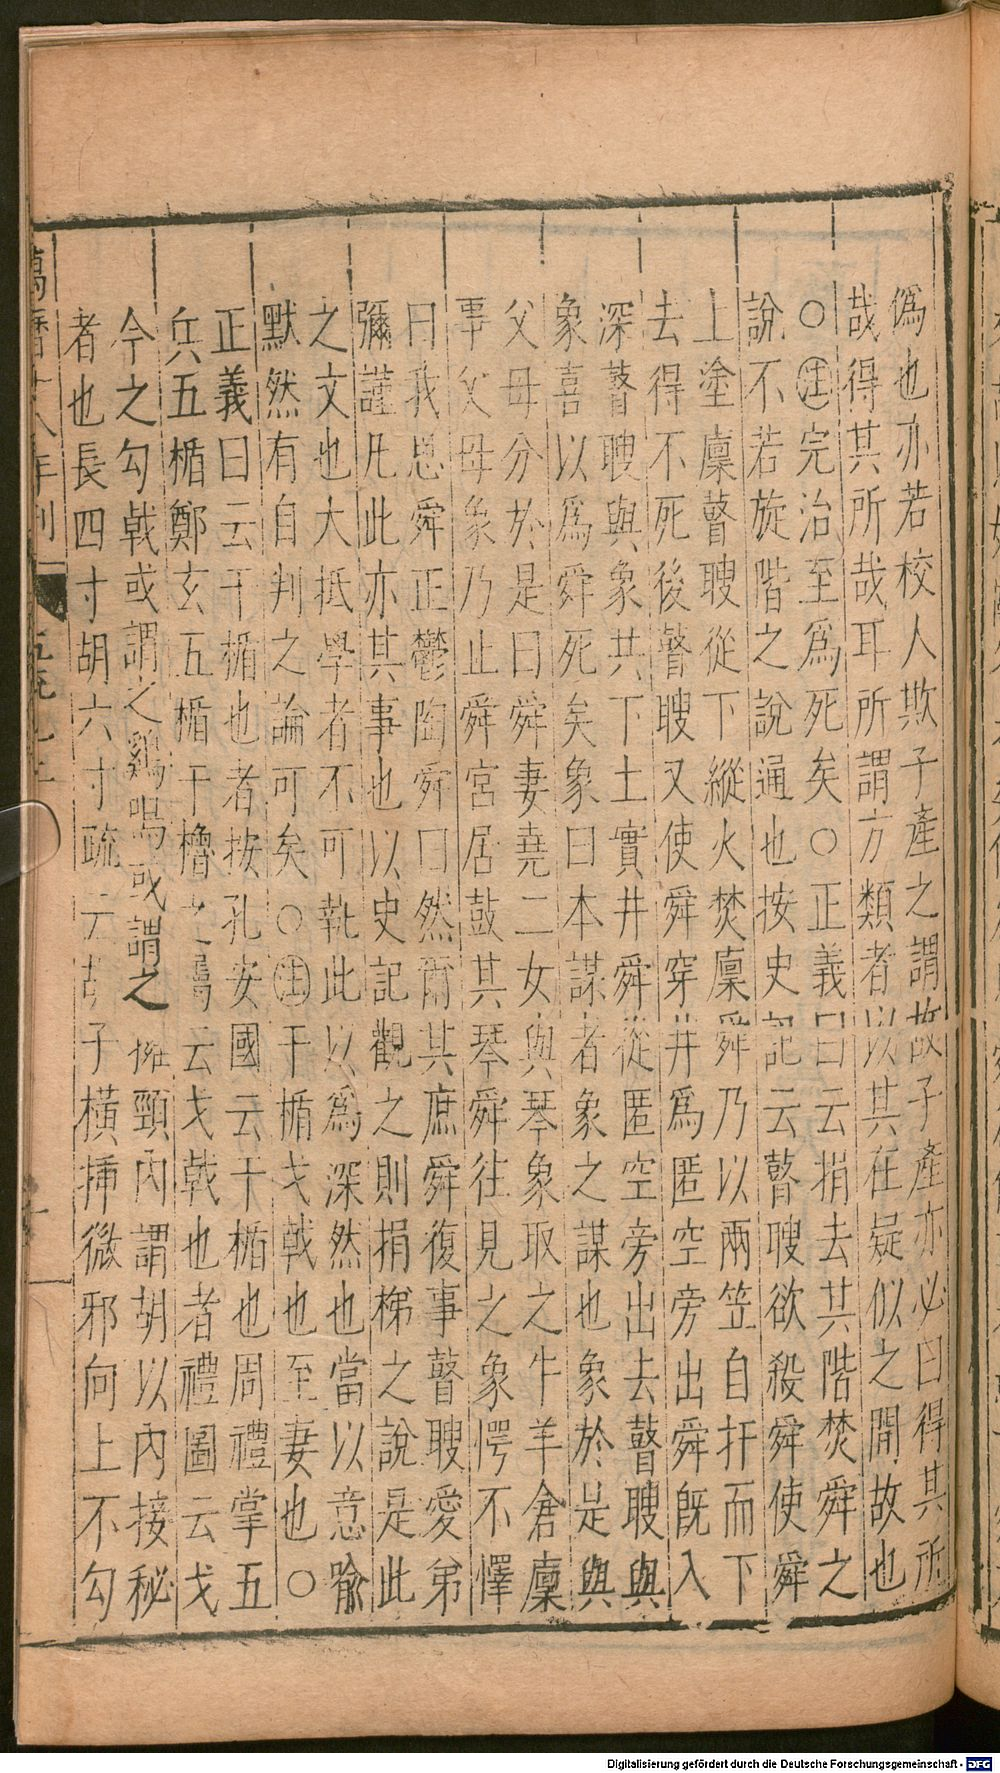 偽也亦若校人欺子產之謂故子產亦必曰得其所
哉得其所哉耳所謂方類者以其在疑似之間故也
○注完治至為死矣○正義曰云捐去其階焚舜之
說不若旋階之說通也按史記云瞽瞍欲殺舜使舜
上塗廩瞽瞍從下縱火焚廩舜乃以兩笠自扞而下
去得不死後瞽瞍又使舜穿井為匿空旁出舜既入
深瞽瞍與象共下土實井舜從匿空旁出去瞽瞍與
象喜以為舜死矣象曰本謀者象之謀也象於是與
父母分於是曰舜妻堯二女與琴象取之牛羊倉廩
事父母象乃止舜宮居鼓其琴舜往見之象愕不懌
曰我思舜正鬱陶舜曰然爾其庶舜復事瞽瞍愛弟
彌謹凡此亦其事也以史記觀之則捐梯之說是此
之文也大抵學者不可執此以為深然也當以意喻
默然有自判之論可矣○注干楯戈戟也至妻也○
正義曰云干楯也者按孔安國云干楯也周禮掌五
兵五楯鄭玄五楯干櫓之屬云戈戟也者禮圖云戈
今之勾戟或謂之鷄鳴或謂之擁頸內謂胡以內接秘
者也長四寸胡六寸疏云胡子橫揷微邪向上不勾
萬曆十八年刊
Digitalisierung gefördert durch die Deutsche Forschungsgemeinschaft - DFG